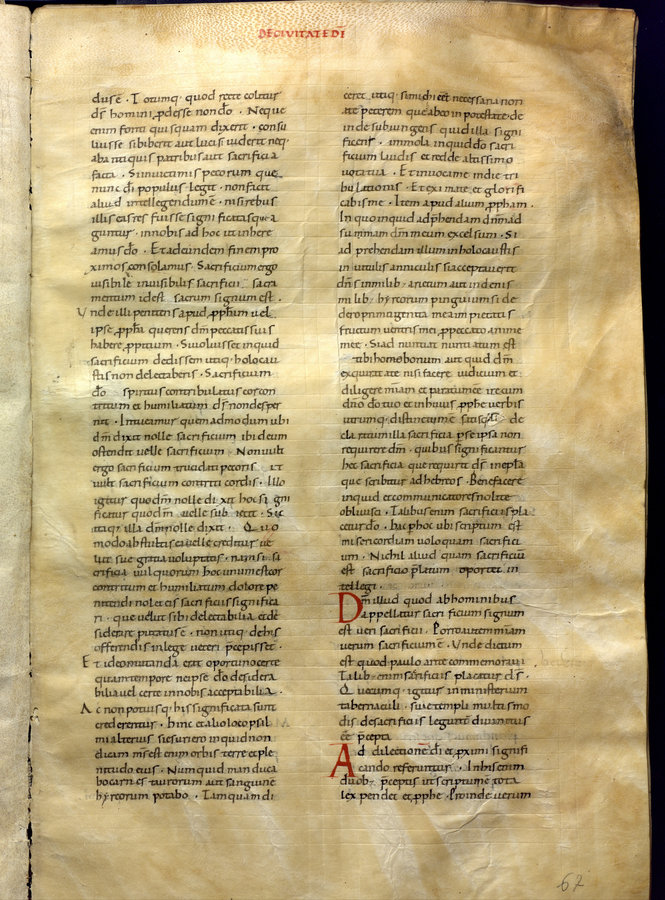 DE CIVITATE DĪ
dus ē · Totumq · quod recte colitur
ds̄ homini p̱desse non do · Neque
enim fonti quisquam dixerit · consu
luisse si biberit aut luci si viderit neq ·
ab antiquis patribus aut sacrificia
facta · Sunt victimis pecorum que
nunc dī populus legit · non facit
aliud intellegendum ē · nisi rebus
illis eas res fuisse significatas que a
guntur · in nobis ad hoc ut inhere
amus do · Et ad eundem finem pro
ximos consolamus · Sacrificium ergo
visibile invisibilis sacrificii · sacra
mentum id est · sacrum signum est ·
Unde ille penitens apud p̱pham vel
ipse p̱pha querens dm̄ peccatis suis
habere p̱pitium · Si voluisses inquid
sacrificium dedissem utiq · holocau
stis non delectaberis · Sacrificium
do spiritus contribulatus cor con
tritum et humiliatum ds̄ non desper
nit · Intueamur quem admodum ubi
dm̄ dixit nolle sacrificium ibi deum
ostendit velle sacrificium · Non vult
ergo sacrificium trucidati pecoris et
vult sacrificium contriti cordis · Illo
igitur quod
ficatur quod
itaq · illa dm̄ nolle dixit · Quo
modo ab stultis ea velle creditur ve
lut sue gratia voluptatis · nam si sa
crificia
contritum et humiliatum dolore pe
nitendi nollet eis sacrificiis significa
ri · que velut sibi delectabilia et de
siderare putatus ē · non utiq · de his
offerendis in lege veteri p̱cepisset ·
Et ideo mutanda erat oportuno certe
quam tempore ne ipse do desidera
bilia vel certe in nobis acceptabilia ·
Ac non potius q · his significata sunt
crederentur · hinc et alio loco psal
mi alterius si esuriero inquid non
dicam m̄ est enim orbis terre et ple
nitudo eius · Numquid manduca
bo carnes taurorum aut sanguine
hyrcorum potabo · Tamquam di
ceret utiq · si mihi eēt necessaria non
a te peterem que abeo in potestate · de
inde subiungens quid illa signi
ficent · immola inquid do sacri
ficium laudis et redde altissimo
vota tua · Et invoca me in die tri
bulationis · Et eximam te et glorifi
cabis me · Item apud alium p̱pham ·
In quo inquid adp̱hendam dnm̄ ad
sumam dm̄ meum excelsum · Si
adprehendam illum in holocaustis
in vitulis anniculis si acceptaverit
dn̄s in milib · arietum aut in denis
milib · hyrcorum pinguium si de
dero primogenita mea impietatis
fructum ventris mei p̱ peccato anime
mee · Si adnuntiatum est
tibi homo bonum aut quid dm̄
exquirat a te nisi facere iudicium et
diligere mīam et paratum eē ire cum
dn̄o do tuo et in huius p̱phe verbis
utrumq · distinctum ē satisq · de
claratum illa sacrificia p̱ se ipsa non
requirere dm̄ · quibus significantur
hec sacrificia que requirit ds̄ in ep̄la
que scribitur ad hebreos · Benefacere
inquid et communicatores nolite
oblivisci · Talibus enim sacrificiis pla
cetur do · hac p̱ hoc ubi scriptum est
misericordiam volo quam sacrifici
um · Nichil aliud quam sacrificiū
est sacrificio p̱latum oportet in
tellegi ·
Dm̄ illud quod ab hominibus
appellatur sacrificium signum
est veri sacrificii · Porro autem mīam
verum sacrificium ē · Unde dictum
est quod paulo ante commemoravi
Talib · enim sacrificiis placatur ds̄ ·
Quecumq · igitur in ministerium
tabernaculi · sive templi multis mo
dis de sacrificiis leguntur divinitus
eē p̱cepta
Ad dilectionē dī et p̱ximi signifi
cando referuntur · In his enim
duob · p̱ceptis ut scriptum ē tota
lex pendet et p̱phe · Proinde verum
67